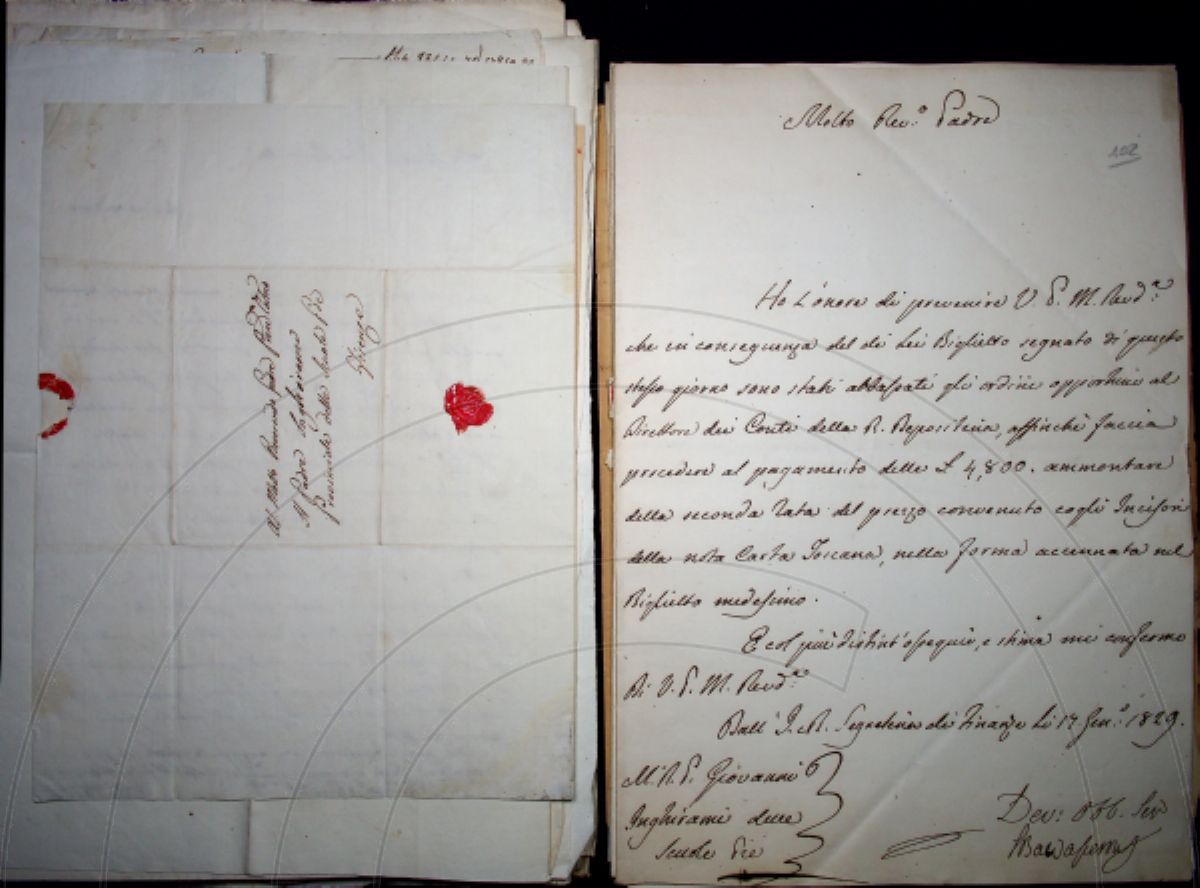 Al Molto Reverendo Padre
Il Padre Inghirami
Provinciale delle Scuole Pie
Firenze
Molto Rev.º Padre
102
Ho l'onore di prevenire V. P. M. Revd.ª
che in conseguenza del di Lei Biglietto segnato di questo
stesso giorno sono stati abbassati gli ordini opportuni al
Direttore dei Conti della R. Depositeria, affinchè faccia
procedere al pagamento delle £ 4,800. ammontare
della seconda rata del prezzo convenuto cogli Incisori
della nota Carta Toscana, nella forma accennata nel
Biglietto medesimo.
E col più distint'ossequio, e stima mi confermo
Di V. P. M. Revd.ª
Dall' I. e R. Segreteria di Finanze li 17 Gen.º 1829.
M. R. P. Giovanni
Inghirami delle
Scuole Pie
Dev: Obb. Ser